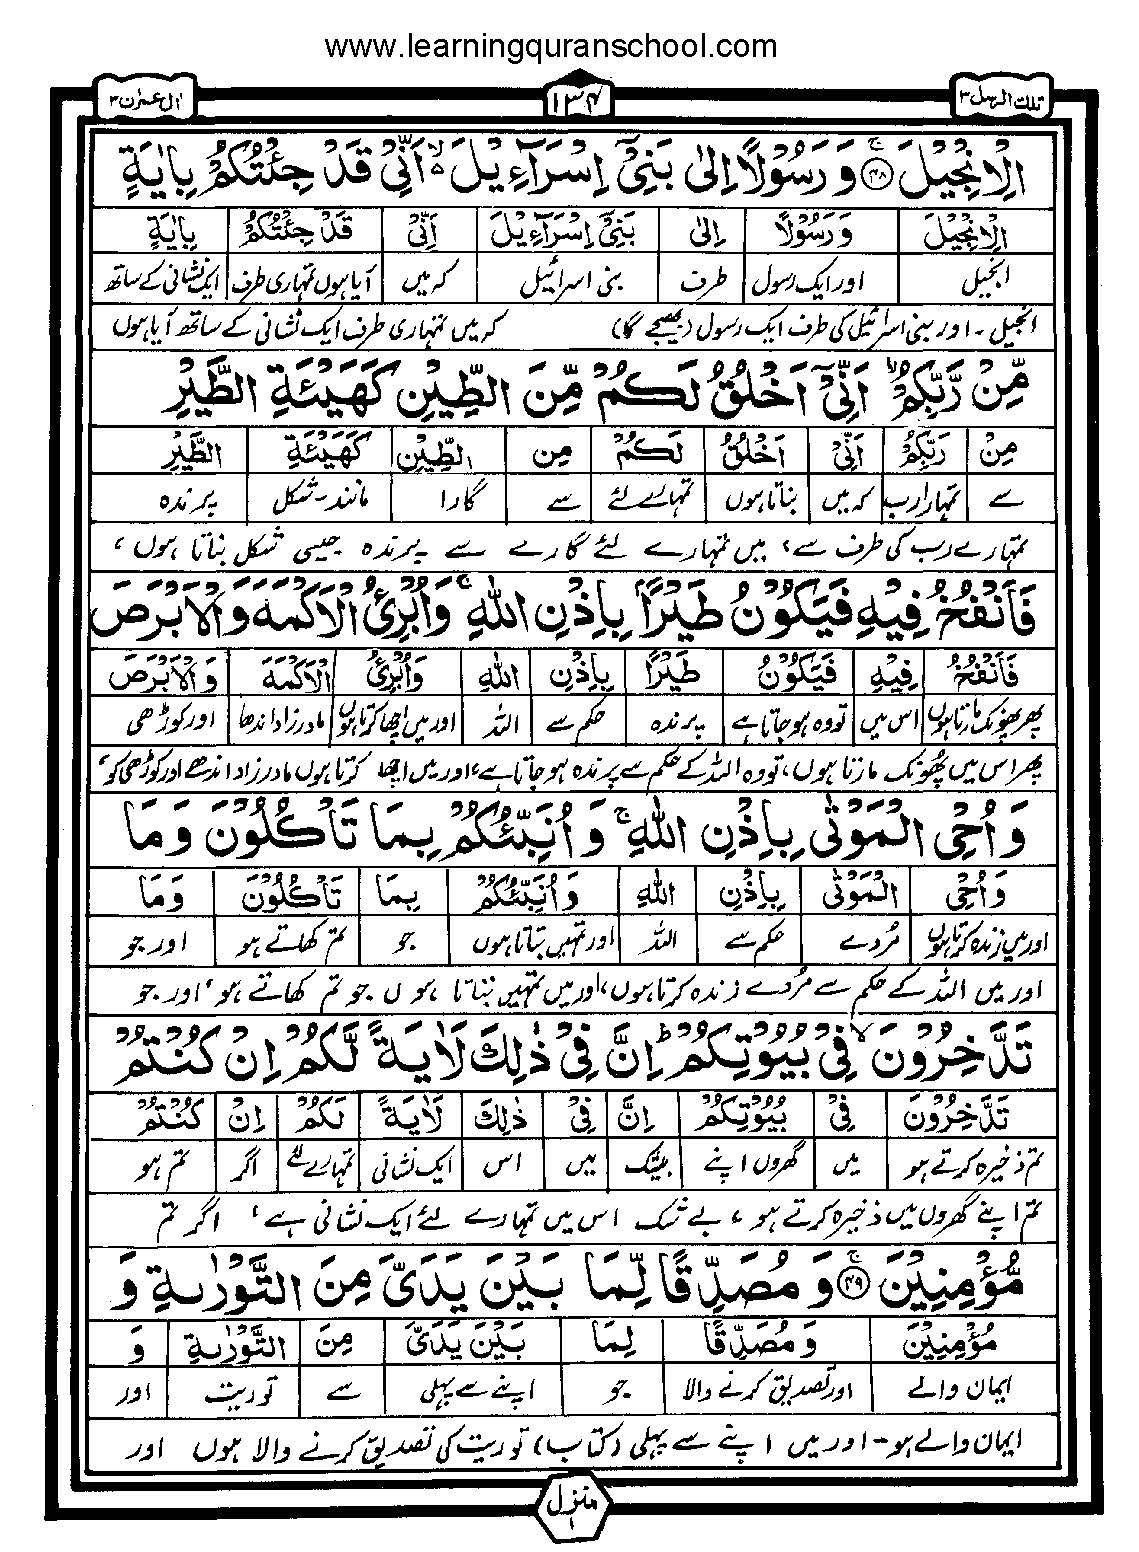 www.learningquranschool.com
تلك الرسل ٣ ١٣٤ اٰل عمرٰن ٣
الْاِنْجِيْلَ ۚ﴿۴۸﴾ وَ رَسُوْلًا اِلٰى بَنِىْۤ اِسْرَآءِيْلَ ۙ اَنِّىْ قَدْ جِئْتُكُمْ بِاٰيَةٍ
الْاِنْجِيْلَ وَ رَسُوْلًا اِلٰى بَنِىْۤ اِسْرَآءِيْلَ اَنِّىْ قَدْ جِئْتُكُمْ بِاٰيَةٍ
انجیل اور ایک رسول طرف بنی اسرائیل کہ میں آیا ہوں تمہاری طرف ایک نشانی کے ساتھ
انجیل ۔ اور بنی اسرائیل کی طرف ایک رسول (بھیجے گا) کہ میں تمہاری طرف ایک نشانی کے ساتھ آیا ہوں
مِّنْ رَّبِّكُمْ ۙ اَنِّىْۤ اَخْلُقُ لَكُمْ مِّنَ الطِّيْنِ كَهَيْئَةِ الطَّيْرِ
مِنْ رَبِّكُمْ اَنِّىْ اَخْلُقُ لَكُمْ مِنَ الطِّيْنِ كَهَيْئَةِ الطَّيْرِ
سے تمہارا رب کہ میں بناتا ہوں تمہارے لئے سے گارا مانند۔شکل پرندہ
تمہارے رب کی طرف سے، میں تمہارے لئے گارے سے پرندہ جیسی شکل بناتا ہوں،
فَاَنْفُخُ فِيْهِ فَيَكُوْنُ طَيْرًا بِاِذْنِ اللّٰهِ ۚ وَاُبْرِئُ الْاَكْمَهَ وَالْاَبْرَصَ
فَاَنْفُخُ فِيْهِ فَيَكُوْنُ طَيْرًا بِاِذْنِ اللّٰهِ وَاُبْرِئُ الْاَكْمَهَ وَالْاَبْرَصَ
پھر پھونک مارتا ہوں اس میں تو وہ ہو جاتا ہے پرندہ حکم سے اللہ اور میں اچھا کرتا ہوں مادرزاد اندھا اور کوڑھی
پھر اس میں پھونک مارتا ہوں، تو وہ اللہ کے حکم سے پرندہ ہو جاتا ہے، اور میں اچھا کرتا ہوں مادرزاد اندھے اور کوڑھی کو،
وَ اُحْىِ الْمَوْتٰى بِاِذْنِ اللّٰهِ ۚ وَ اُنَبِّئُكُمْ بِمَا تَاْكُلُوْنَ وَ مَا
وَ اُحْىِ الْمَوْتٰى بِاِذْنِ اللّٰهِ وَ اُنَبِّئُكُمْ بِمَا تَاْكُلُوْنَ وَ مَا
اور میں زندہ کرتا ہوں مُردے حکم سے اللہ اور تمہیں بتاتا ہوں جو تم کھاتے ہو اور جو
اور میں اللہ کے حکم سے مُردے زندہ کرتا ہوں، اور میں تمہیں بتاتا ہوں جو تم کھاتے ہو، اور جو
تَدَّخِرُوْنَ ۙ فِىْ بُيُوْتِكُمْ ؕ اِنَّ فِىْ ذٰلِكَ لَاٰيَةً لَّكُمْ اِنْ كُنْتُمْ
تَدَّخِرُوْنَ فِىْ بُيُوْتِكُمْ اِنَّ فِىْ ذٰلِكَ لَاٰيَةً لَكُمْ اِنْ كُنْتُمْ
تم ذخیرہ کرتے ہو میں گھروں اپنے بیشک میں اس ایک نشانی تمہارے لئے اگر تم ہو
تم اپنے گھروں میں ذخیرہ کرتے ہو، بے شک اس میں تمہارے لئے ایک نشانی ہے، اگر تم
مُّؤْمِنِيْنَ ۚ﴿۴۹﴾ وَ مُصَدِّقًا لِّمَا بَيْنَ يَدَىَّ مِنَ التَّوْرٰىةِ وَ
مُؤْمِنِيْنَ وَ مُصَدِّقًا لِمَا بَيْنَ يَدَىَّ مِنَ التَّوْرٰىةِ وَ
ایمان والے اور تصدیق کرنے والا جو اپنے سے پہلی سے توریت اور
ایمان والے ہو۔ اور میں اپنے سے پہلی (کتاب) توریت کی تصدیق کرنے والا ہوں اور
منزل ١